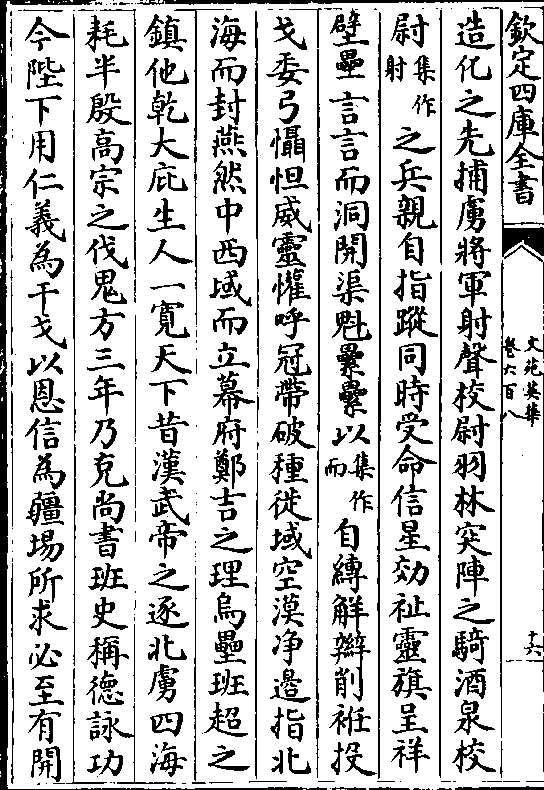 欽定四庫全書
文苑英華
卷六百八
十六
造化之先捕虜將軍射聲校尉羽林突陣之騎酒泉校
尉集作射之兵親自指蹤同時受命信星効祉靈旗呈祥
壁壘言言而洞開渠魁纍纍以集作而自縛解辮削衽投
戈委弓懾怛威靈懽呼冠帶破種徙域空漠净邉指北
海而封燕然中西域而立幕府鄭吉之理烏壘班超之
鎮他乾大庇生人一寛天下昔漢武帝之逐北虜四海
耗半殷高宗之伐鬼方三年乃克尚書班史稱德詠功
今陛下用仁義為干戈以恩信為疆埸所求必至有開